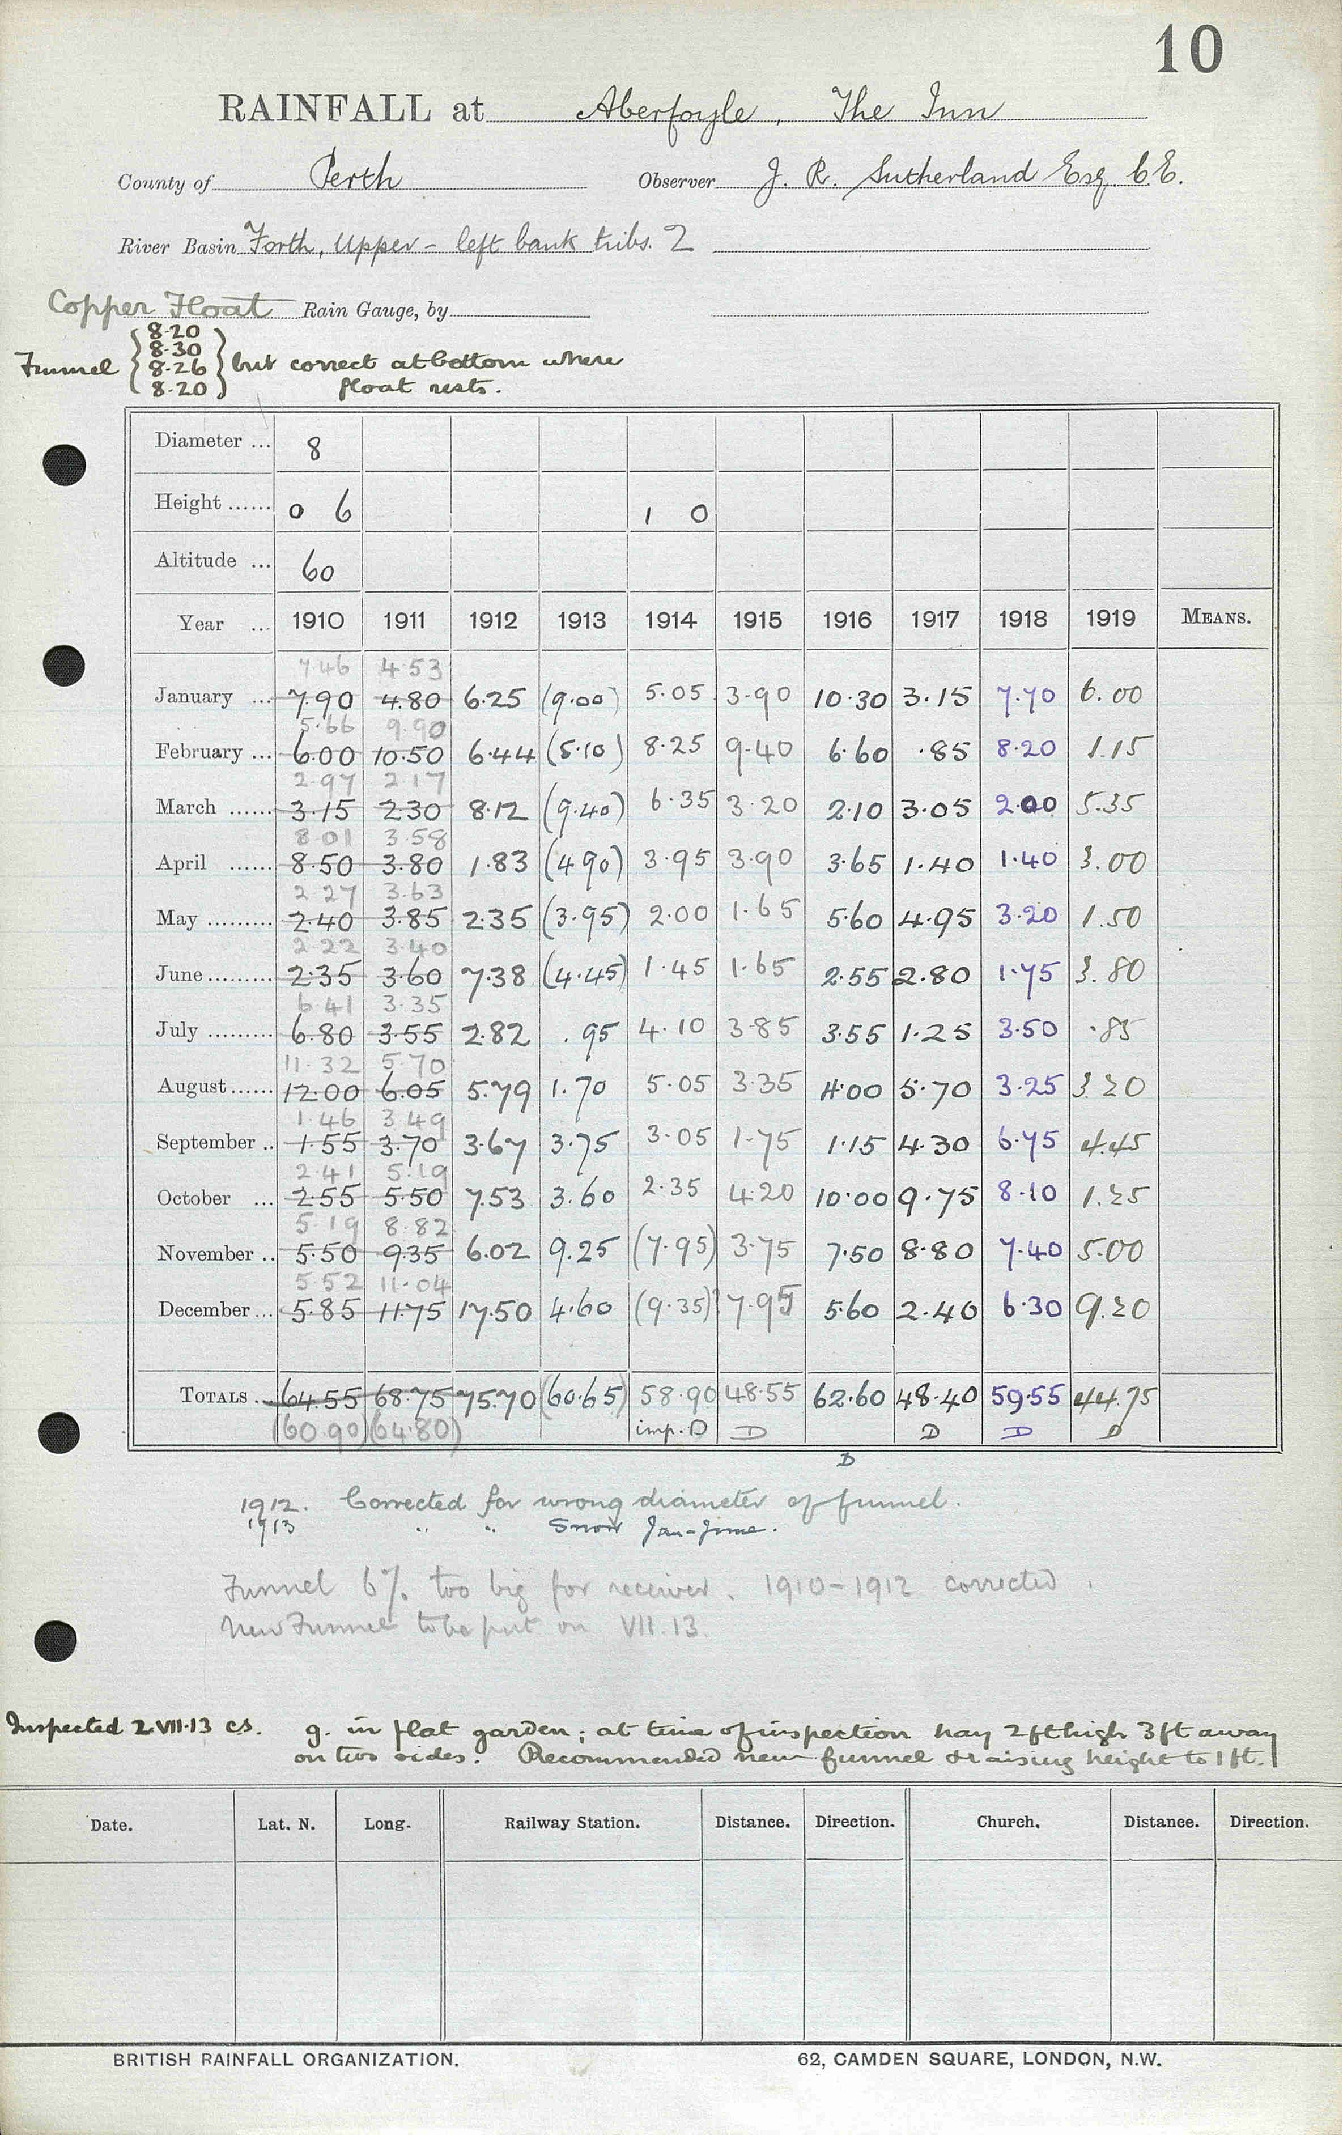 10
RAINFALL at Aberfoyle, The Inn
County of Perth Observer J. R. Sutherland Esq. C.E.
River Basin Forth, Upper - left bank tribs. 2
Copper Float Rain Gauge, by
Funnel { 8.20 8.30 8.26 8.20 } but correct at bottom where
float rests.
Diameter ... 8
Height ...... 0 6 1 0
Altitude ... 60
Year ... 1910 1911 1912 1913 1914 1915 1916 1917 1918 1919 MEANS.
7.46 4.53
January ... 7.90 4.80 6.25 (9.00) 5.05 3.90 10.30 3.15 7.70 6.00
5.66 9.90
February ... 6.00 10.50 6.44 (5.10) 8.25 9.40 6.60 .85 8.20 1.15
2.97 2.17
March ...... 3.15 2.30 8.12 (9.40) 6.35 3.20 2.10 3.05 2.00 5.35
8.01 3.58
April ...... 8.50 3.80 1.83 (4.90) 3.95 3.90 3.65 1.40 1.40 3.00
2.27 3.63
May ......... 2.40 3.85 2.35 (3.95) 2.00 1.65 5.60 4.95 3.20 1.50
2.22 3.40
June ......... 2.35 3.60 7.38 (4.45) 1.45 1.65 2.55 2.80 1.75 3.80
6.41 3.35
July ......... 6.80 3.55 2.82 .95 4.10 3.85 3.55 1.25 3.50 .85
11.32 5.70
August ...... 12.00 6.05 5.79 1.70 5.05 3.35 4.00 5.70 3.25 3.20
1.46 3.49
September .. 1.55 3.70 3.67 3.75 3.05 1.75 1.15 4.30 6.75 4.45
2.41 5.19
October ... 2.55 5.50 7.53 3.60 2.35 4.20 10.00 9.75 8.10 1.25
5.19 8.82
November .. 5.50 9.35 6.02 9.25 (7.95) 3.75 7.50 8.80 7.40 5.00
5.52 11.04
December ... 5.85 11.75 17.50 4.60 (9.35) 7.95 5.60 2.40 6.30 9.20
TOTALS .. 64.55 68.75 75.70 (60.65) 58.90 48.55 62.60 48.40 59.55 44.75
(60.90) (64.80) imp. D D D D D
D
1912. Corrected for wrong diameter of funnel.
1913 " " Snow Jan-June.
Funnel 6% too big for receiver. 1910-1912 corrected.
New Funnel to be put on VII.13.
Inspected 2.VII.13 CS. g. in flat garden; at time of inspection hay 2ft high 3ft away
on two sides. Recommended new funnel & raising height to 1 ft.
Date. Lat. N. Long. Railway Station. Distance. Direction. Church. Distance. Direction.
BRITISH RAINFALL ORGANIZATION. 62, CAMDEN SQUARE, LONDON, N.W.